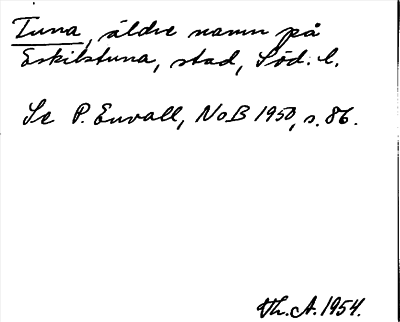 Tuna, äldre namn på
Eskilstuna, stad, Söd. l.
Se P. Envall, NoB 1950, s. 86.
Th. A. 1954.